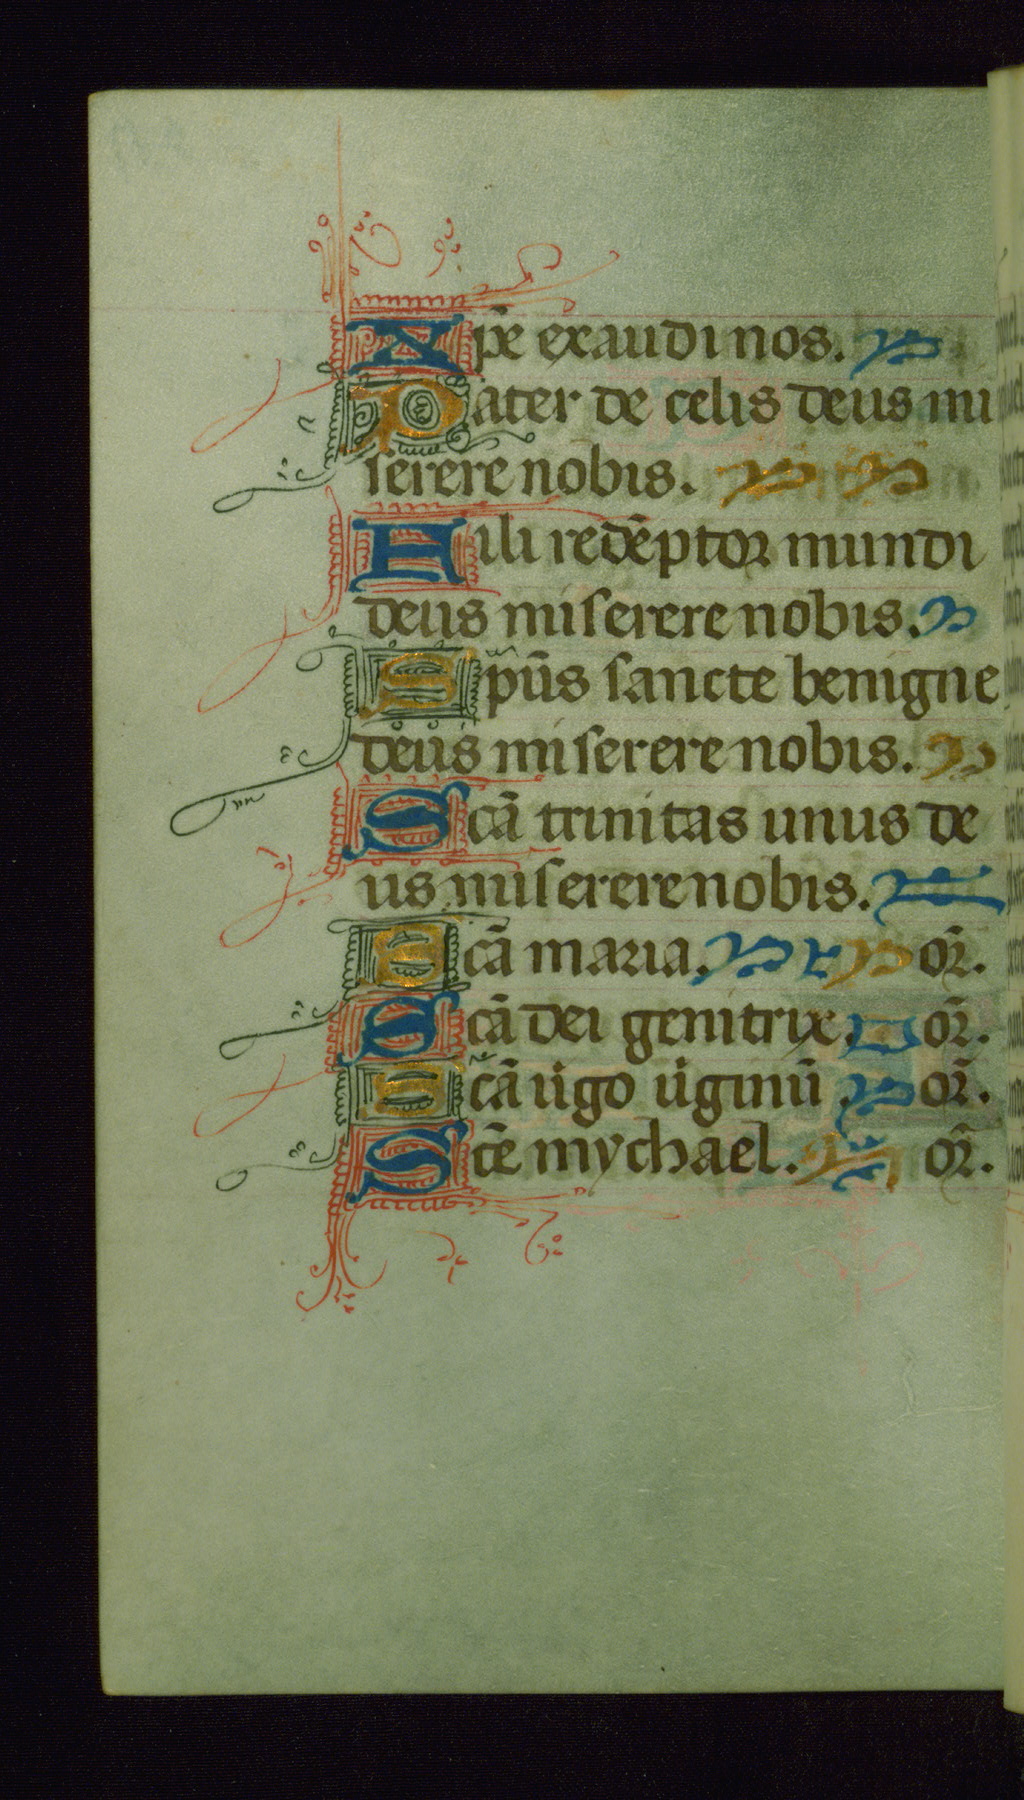 Xp̃e exaudi nos.
Pater de celis deus mi
serere nobis.
Fili redẽptor mundi
deus miserere nobis.
Spũs sancte benigne
deus miserere nobis.
Scã trinitas unus de
us miserere nobis.
Scã maria. or̃.
Scã dei genitrix. or̃.
Scã uĩgo uĩginũ or̃.
Scẽ mychael. or̃.